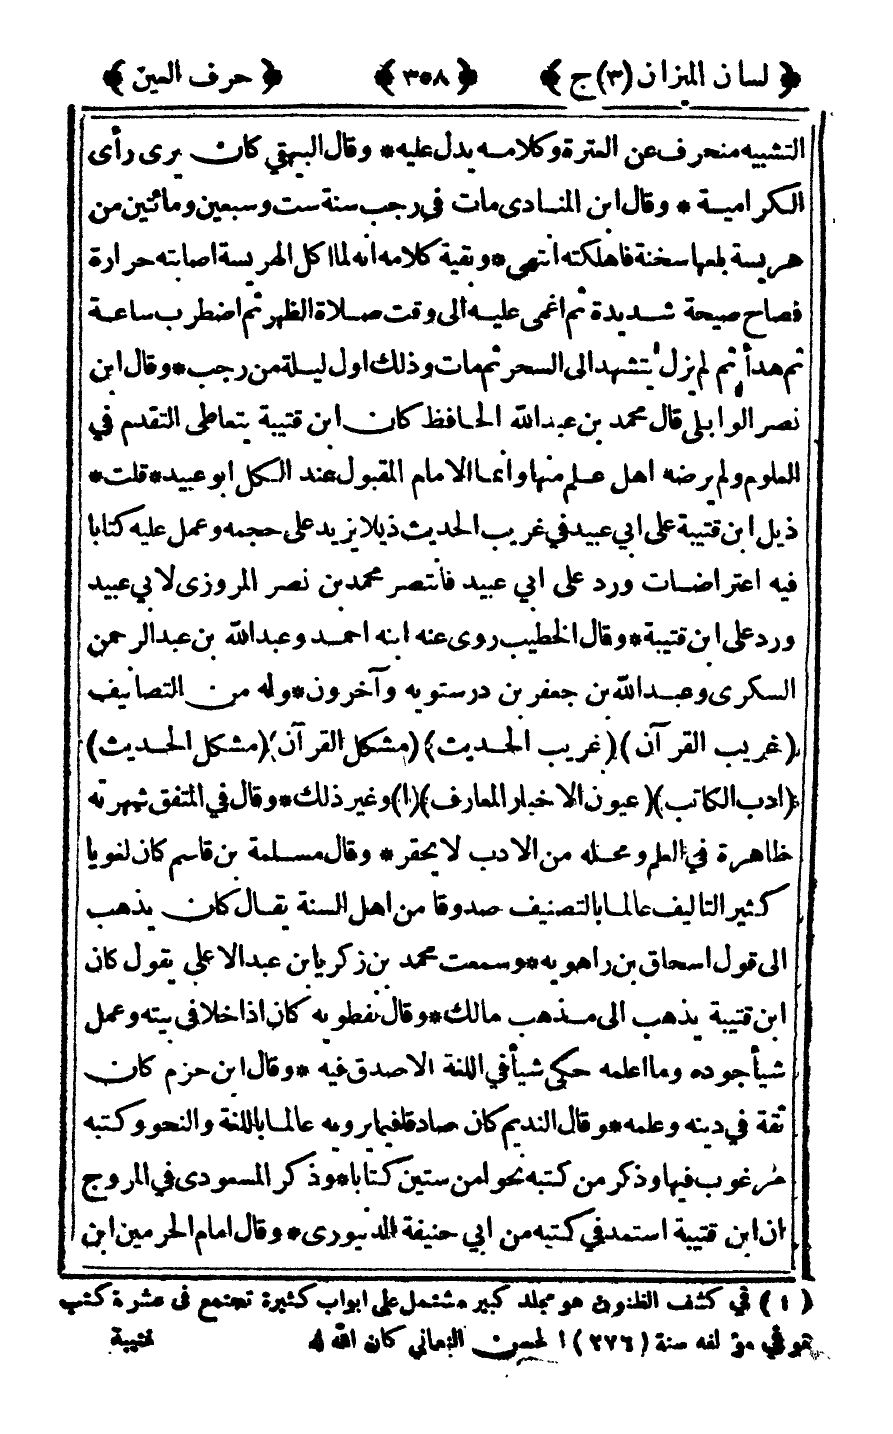 ﴿ لسان الميزان (٣) ج ﴾ ﴿ ٣٥٨ ﴾ ﴿ حرف العين ﴾
التشبيه منحرف عن العترة وكلامه يدل عليه * وقال البيهقي كان يرى رأى
الكرامية * وقال ابن المنادى مات في رجب سنة ست وسبعين ومائتين من
هريسة بلعها سخنة فاهلكته انتهى * وبقية كلامه انه لما اكل الهريسة اصابته حرارة
فصاح صيحة شديدة ثم اغمى عليه الى وقت صلاة الظهر ثم اضطرب ساعة
ثم هدأ ثم لم يزل يتشهد الى السحر ثم مات وذلك اول ليلة من رجب * وقال ابن
نصر الوابلي قال محمد بن عبدالله الحافظ كان ابن قتيبة يتعاطى التقدم في
العلوم ولم يرضه اهل علم منها وانما الامام المقبول عند الكل ابو عبيد * قلت *
ذيل ابن قتيبة على ابي عبيد في غريب الحديث ذيلا يزيد على حجمه وعمل عليه كتابا
فيه اعتراضات ورد على ابي عبيد فانتصر محمد بن نصر المروزى لابي عبيد
ورد على ابن قتيبة * وقال الخطيب روى عنه ابنه احمد وعبدالله بن عبدالرحمن
السكرى وعبدالله بن جعفر بن درستويه وآخرون * وله من التصانيف
(غريب القرآن) (غريب الحديث) (مشكل القرآن) (مشكل الحديث)
(ادب الكاتب) (عيون الاخبار المعارف) (١) وغير ذلك * وقال في المتفق شهرته
ظاهرة في العلم ومحله من الادب لا يحقر * وقال مسلمة بن قاسم كان لغويا
كثير التاليف عالما بالتصنيف صدوقا من اهل السنة يقال كان يذهب
الى قول اسحاق بن راهويه * وسمعت محمد بن زكريا بن عبدالاعلى يقول كان
ابن قتيبة يذهب الى مذهب مالك * وقال نفطويه كان اذا خلا في بيته وعمل
شيأ جوده وما اعلمه حكى شيأ في اللغة الا صدق فيه * وقال ابن حزم كان
ثقة في دينه وعلمه * وقال النديم كان صادقا فيما يرويه عالما باللغة والنحو وكتبه
مرغوب فيها وذكر من كتبه نحوا من ستين كتابا * وذكر المسعودى في المروج
ان ابن قتيبة استمد في كتبه من ابي حنيفة الدينورى * وقال امام الحرمين ابن
(١) في كشف الظنون هو مجلد كبير مشتمل على ابواب كثيرة تجتمع في عشرة كتب
توفي مؤلفه سنة (٢٧٦) ١ لحسن النعماني كان الله له قتيبة